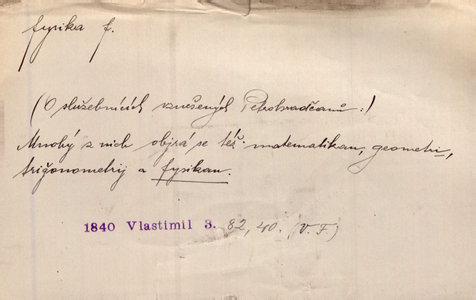 fysika f.
(O služebnících vznešených Petrohradčanů:)
Mnohý z nich objrá se též matematikau, geometrií,
trigonometrij a fysikau.
1840 Vlastimil 3. 82, 40. (V. F.)